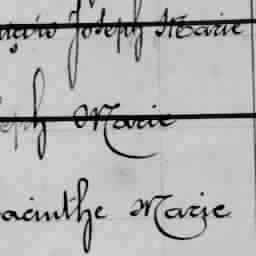 nçois Joseph Marie
eph Marie
acinthe Marie